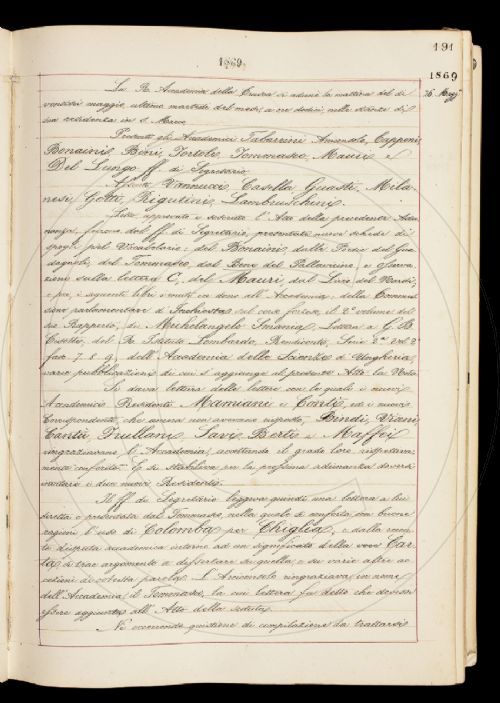 191
1869
1869
26 Magg.º
La R. Accademia della Crusca si adunò la mattina del dì
ventisei maggio, ultimo martedì del mese, a ore dodici, nelle stanze di
sua residenza in S. Marco.
Presenti gli Accademici Tabarrini Arciconsolo, Capponi,
Bonaini, Bini, Tortoli, Tommaseo, Mauri e
Del Lungo ff. di Segretario.
Assenti Vannucci, Casella, Guasti, Mila-
nesi, Gotti, Rigutini, Lambruschini.
Letto, approvato e sottoscritto l'Atto della precedente Adu-
nanza, furono dal ff. di Segretario presentate nuove schede di
spogli pel Vocabolario: del Bonaini, dalle Poesie del Gua-
dagnoli, del Tommaseo, dal Bene del Pallavicino, e osserva-
zioni sulla lettera C, del Mauri, dal Livio del Nardi,
e poi, i seguenti libri venuti in dono all'Accademia: della Commis-
sione parlamentare d'Inchiesta sul corso forzoso, il 2.º volume del
suo Rapporto, di Michelangelo Smania, Lettera a G. B.
Cusetto, del R. Istituto Lombardo, Rendiconti, Serie 2.ª vol. 2
fasc. 7. 8. 9. dell'Accademia delle Scienze di Ungheria,
varie pubblicazioni di cui s'aggiunge al presente Atto la Nota.
Si dava lettura delle lettere con le quali i nuovi
Accademici Residenti Mamiani e Conti, ed i nuovi
Corrispondenti, che ancora non avevano risposto, Bindi, Viani
Cantù, Trullani, Savi, Berti e Maffei
ringraziavano l'Accademia, accettando il grado loro rispettiva-
mente conferito. E si stabiliva per la prossima adunanza doversi
invitare i due nuovi Residenti.
Il ff. di Segretario leggeva quindi una lettera a lui
diretta e presentata dal Tommaseo, nella quale si conforta con buone
ragioni l'uso di Colomba per Chiglia, e dalla recen-
te disputa accademica intorno ad un significato della voce Car-
ta, si trae argomento a dissertare su quella e su varie altre ac-
cezioni di codesta parola. L'Arciconsolo ringraziava in nome
dell'Accademia il Tommaseo, la cui lettera fu detto che dovesse
essere aggiunta all'Atto della seduta.
Nè occorrendo quistione di compilazione da trattarsi